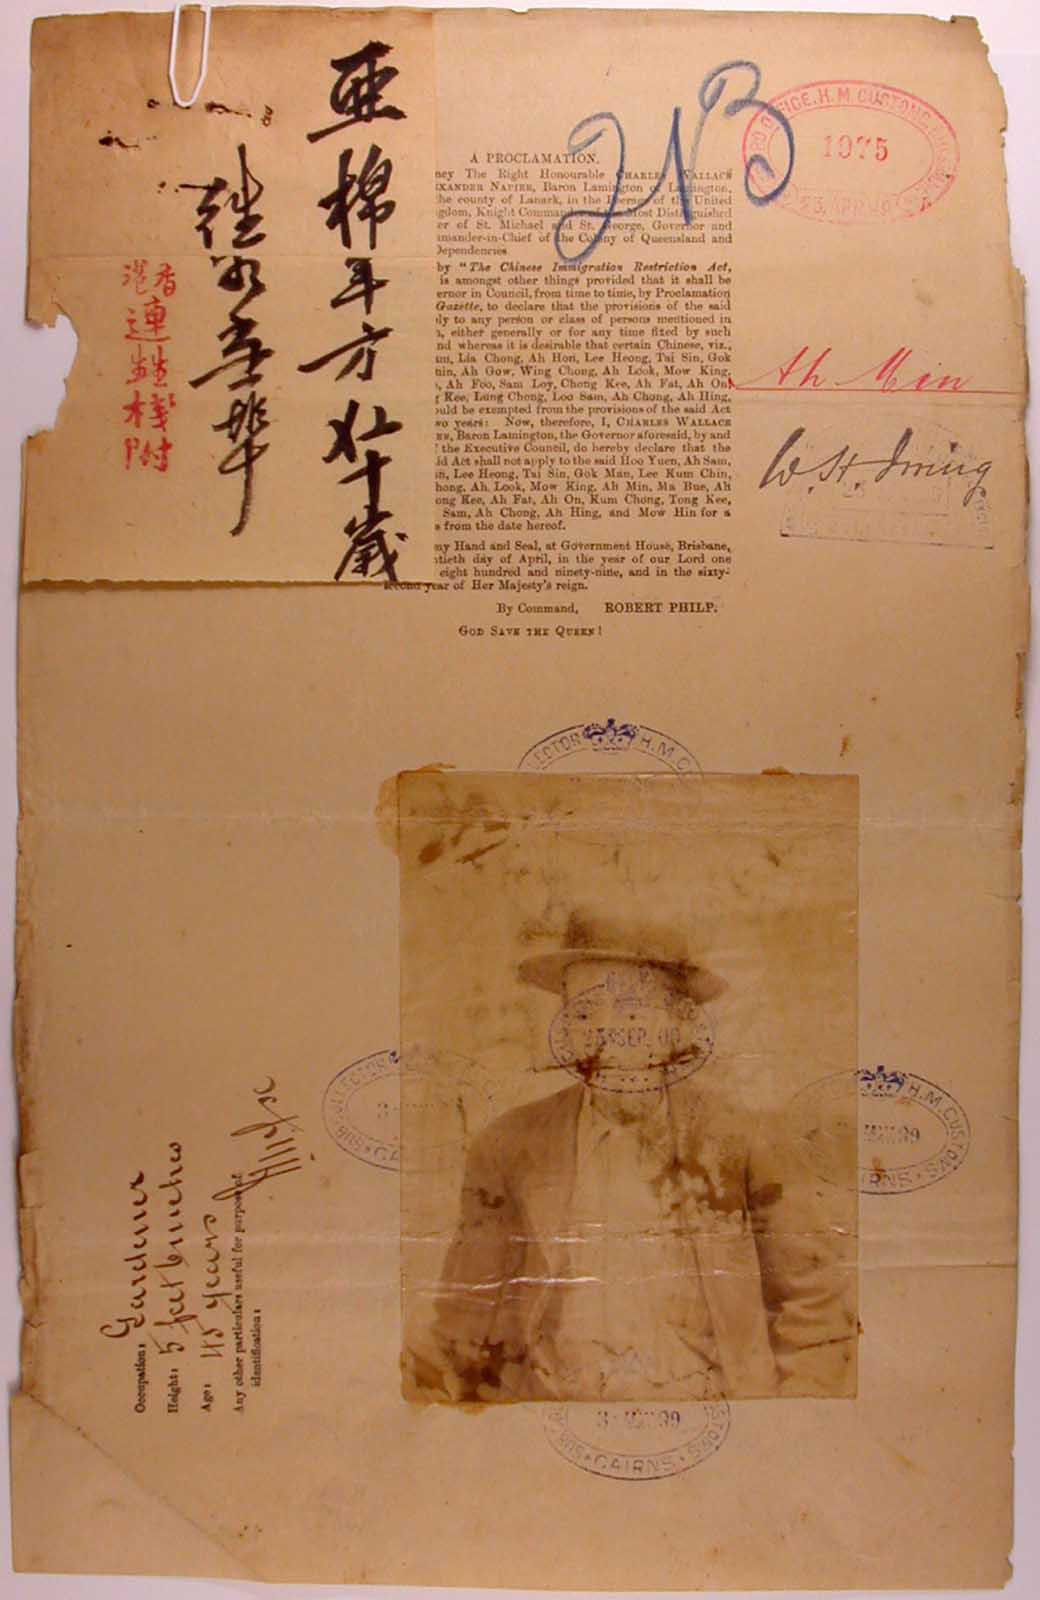 亜棉年方廿十歲
香港
連生棧附
A PROCLAMATION.
ney The Right Honourable CHARLES WALLACE
EXANDER NAPIER, Baron Lamington of Lamington,
he county of Lanark, in the Peerage of the United
gdom, Knight Commander of the Most Distinguished
er of St. Michael and St. George, Governor and
mmander-in-Chief of the Colony of Queensland and
Dependencies
by "The Chinese Immigration Restriction Act,
is amongst other things provided that it shall be
ernor in Council, from time to time, by Proclamation
Gazette, to declare that the provisions of the said
ly to any person or class of persons mentioned in
, either generally or for any time fixed by such
nd whereas it is desirable that certain Chinese, viz.,
Lia Chong, Ah Hon, Lee Heong, Tai Sin, Gok
hin, Ah Gow, Wing Chong, Ah Look, Mow King,
, Ah Foo, Sam Loy, Chong Kee, Ah Fat, Ah On,
Kee, Lung Chong, Loo Sam, Ah Chong, Ah Hing,
ould be exempted from the provisions of the said Act
wo years: Now, therefore, I, CHARLES WALLACE
Baron Lamington, the Governor aforesaid, by and
the Executive Council, do hereby declare that the
id Act shall not apply to the said Hoo Yuen, Ah Sam,
Lee Heong, Tai Sin, Gok Man, Lee Kum Chin,
hong, Ah Look, Mow King, Ah Min, Ma Bue, Ah
ong Kee, Ah Fat, Ah On, Kum Chong, Tong Kee,
Sam, Ah Chong, Ah Hing, and Mow Hin for a
s from the date hereof.
my Hand and Seal, at Government House, Brisbane,
ntieth day of April, in the year of our Lord one
eight hundred and ninety-nine, and in the sixty-
second year of Her Majesty's reign.
By Command, ROBERT PHILP.
GOD SAVE THE QUEEN!
OFFICE, H. M. CUSTOMS,
1975
Ah Min
W. H. Irving
LECTOR H.M.C
SUB-COLLECTOR
SEP. 00
H.M. CUSTOMS
99
CAIRNS
CAIRNS
Occupation: Gardener
Height: 5 feet 6 inches
Age: 45 years
Any other particulars useful for purpose of
identification: